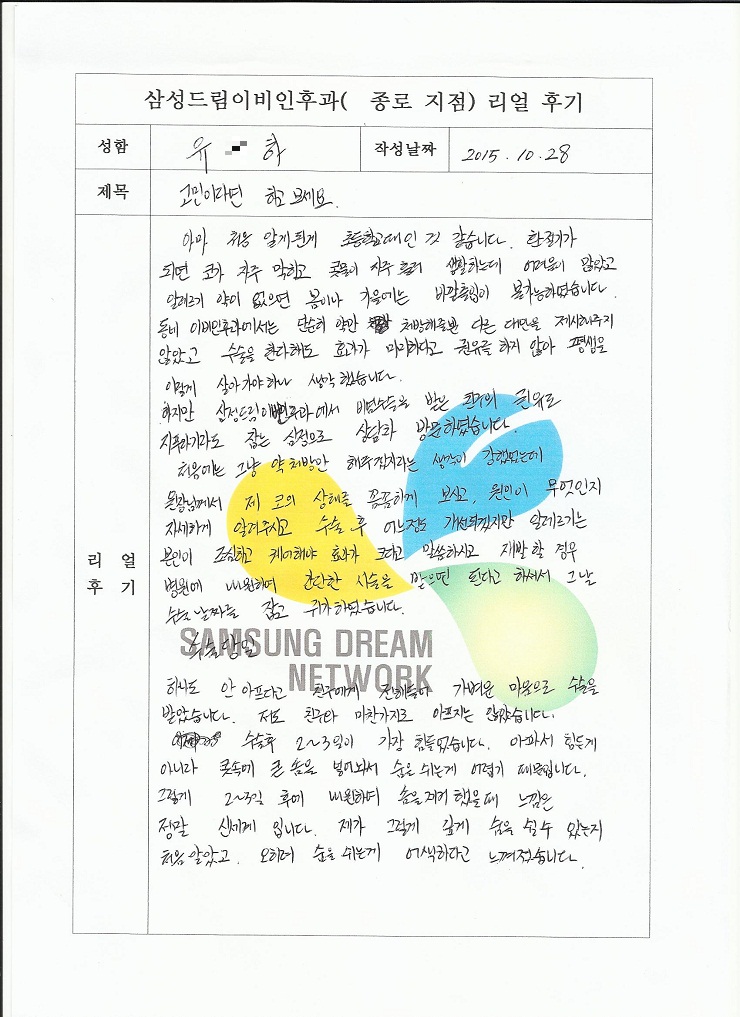 삼성드림이비인후과( 종로 지점) 리얼 후기
성함 유 하 작성날짜 2015. 10. 28
제목 고민이라면 하고 보세요.
리 얼
후 기
아마 처음 알게된게 초등학교때인 것 같습니다. 환절기가
되면 코가 자주 막히고 콧물이 자주 흘러 생활하는데 어려움이 많았고
알레르기 약이 없으면 봄이나 가을에는 바깥출입이 불가능하였습니다.
동네 이비인후과에서는 단순히 약만 처방해줄뿐 다른 대안을 제시해주지
않았고 수술을 한다해도 효과가 미미하다고 권유를 하지 않아 평생을
이렇게 살아가야하나 생각했습니다.
하지만 삼성드림이비인후과에서 비염수술을 받은 친구의 권유로
지푸라기라도 잡는 심정으로 상담차 방문하였습니다
처음에는 그냥 약처방만 해주겠지라는 생각이 강했었는데
원장님께서 제 코의 상태를 꼼꼼하게 보시고, 원인이 무엇인지
자세하게 알려주시고 수술 후 어느정도 개선되겠지만 알레르기는
본인이 조심하고 케어해야 효과가 크다고 말씀하시고 재발 할 경우
병원에 내원하여 간단한 시술을 받으면 된다고 하셔서 그날
수술 날짜를 잡고 귀가하였습니다.
수술당일
하나도 안 아프다고 친구에게 전해들어 가벼운 마음으로 수술을
받았습니다. 저도 친구와 마찬가지로 아프지는 않았습니다.
수술후 2~3일이 가장 힘들었습니다. 아파서 힘든게
아니라 콧속에 큰 솜을 넣어놔서 숨을 쉬는게 어렵기 때문입니다.
그렇게 2~3일 후에 내원하여 솜을 제거 했을때 느낌은
정말 신세계 입니다. 제가 그렇게 깊게 숨을 쉴 수 있는지
처음 알았고. 오히려 숨을 쉬는게 어색하다고 느껴졌습니다.
SAMSUNG DREAM
NETWORK